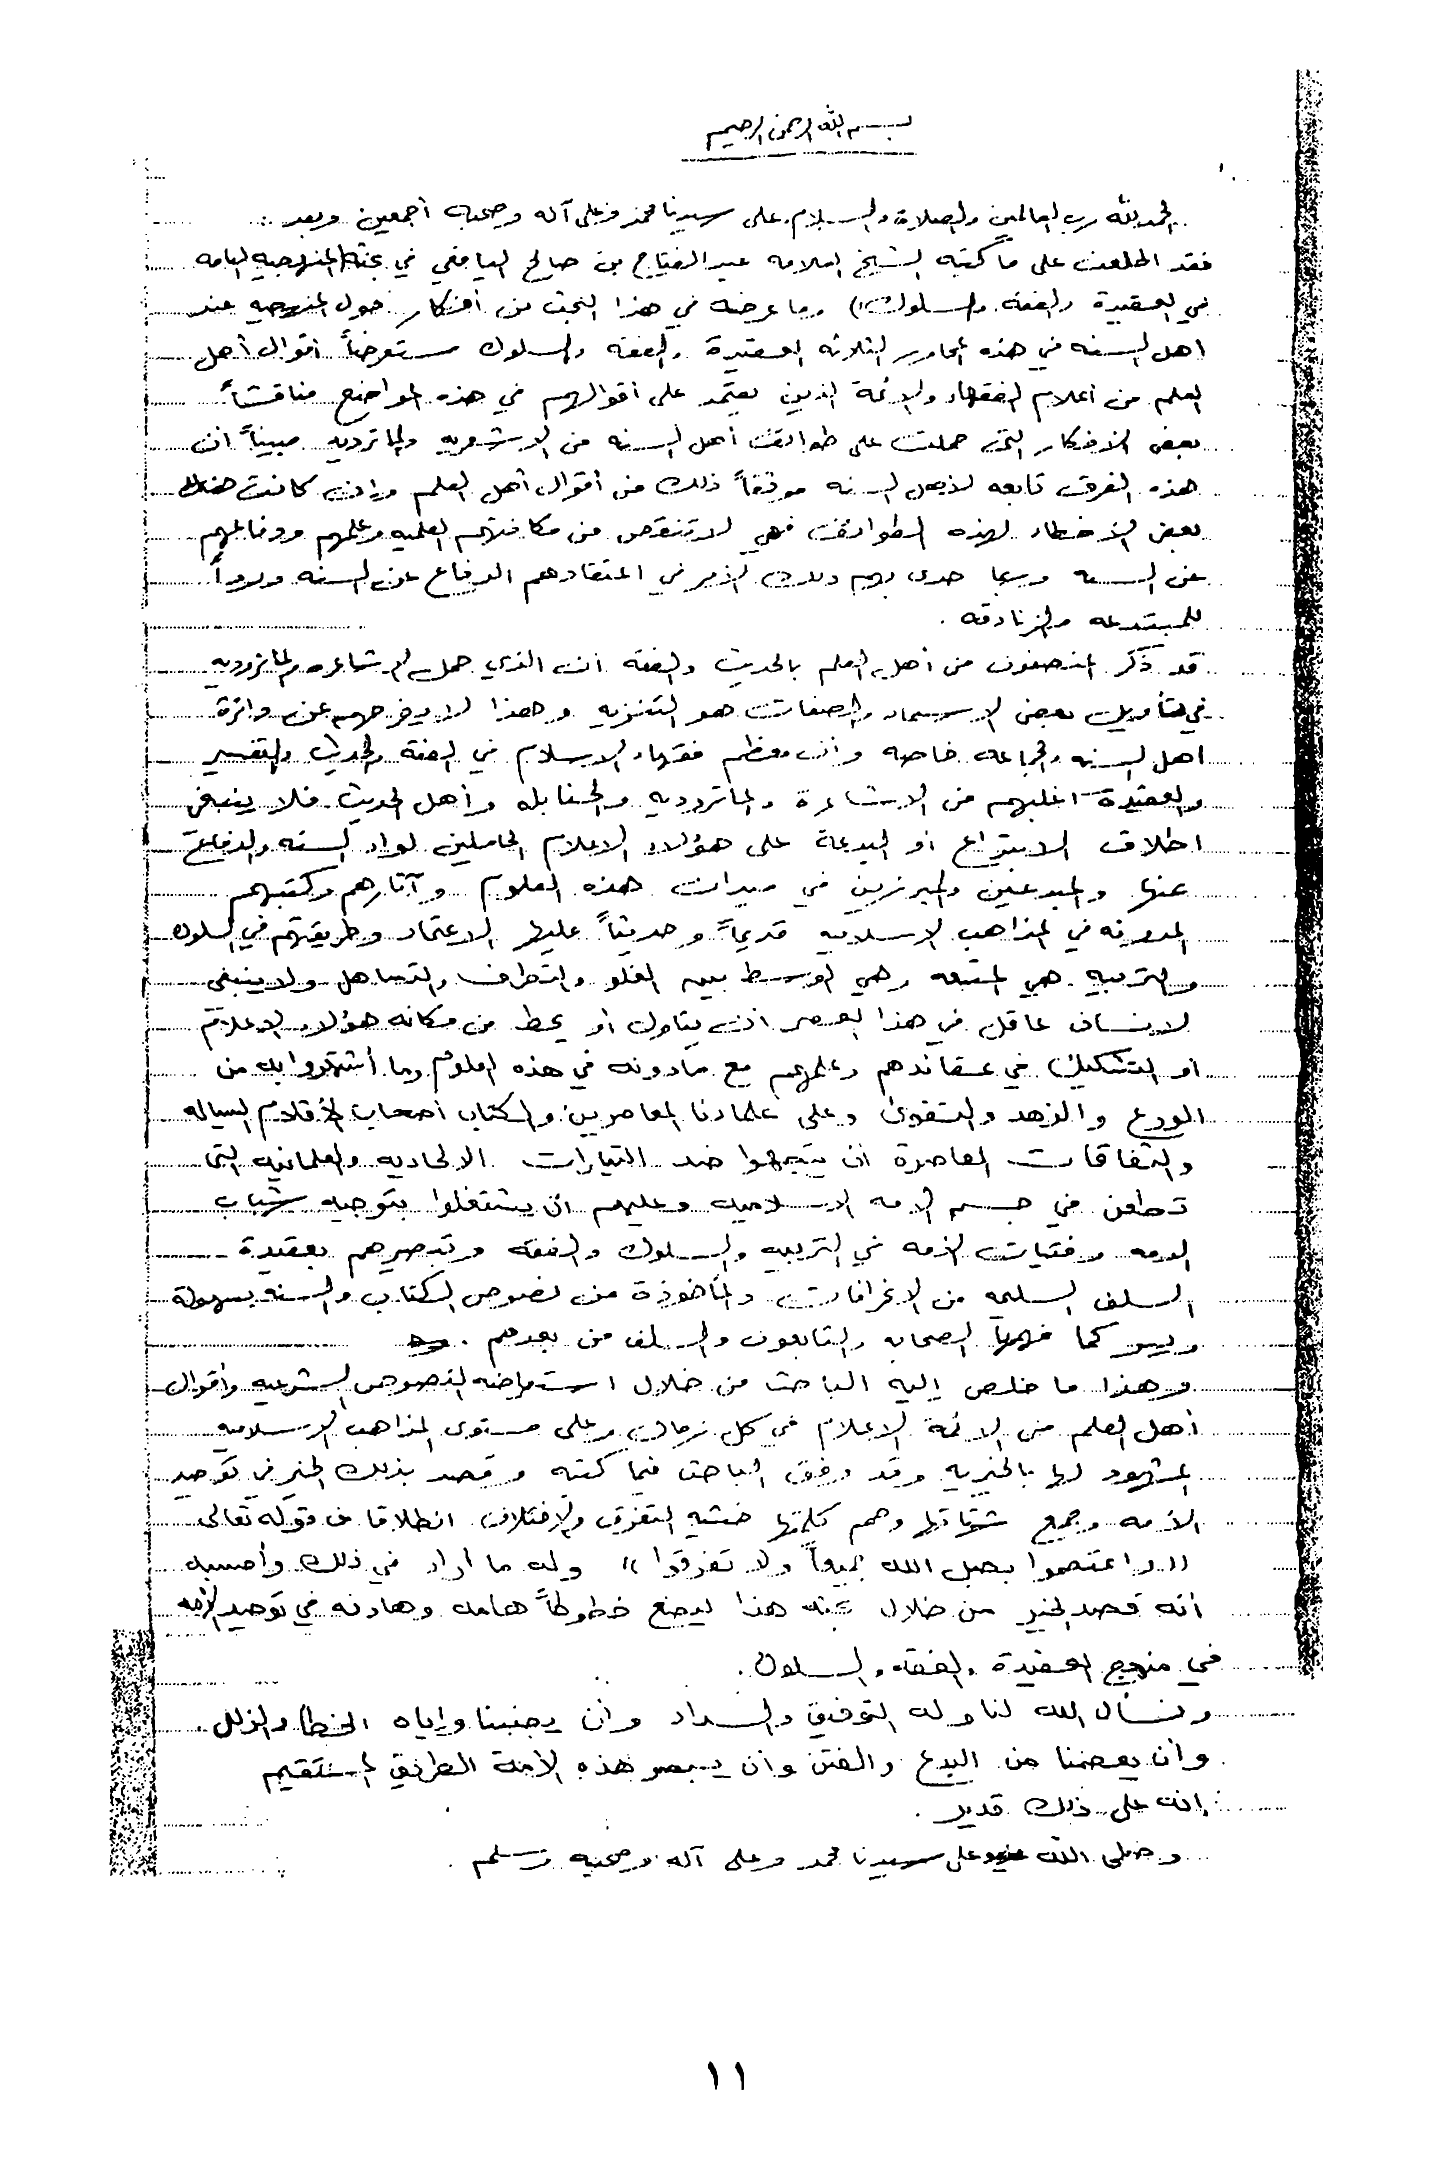 بسم الله الرحمن الرحيم
الحمد لله رب العالمين والصلاة والسلام على سيدنا محمد وعلى آله وصحبه أجمعين وبعد :
فقد اطلعت على ما كتبه الشيخ العلامه عبد الفتاح بن صالح اليافعي في بحثه (المنهجيه العامه
في العقيدة والفقه والسلوك) وما عرضه في هذا البحث من أفكار حول المنهجيه عند
أهل السنه في هذه المحاور الثلاثه العقيدة والفقه والسلوك مستعرضاً أقوال أهل
العلم من أعلام الفقهاء والائمة الذين يعتمد على أقوالهم في هذه المواضع مناقشاً
بعض الأفكار التي حملت على طوائف أهل السنه من الاشعريه والماترديه مبيناً ان
هذه الفرق تابعه لأهل السنه موثقاً ذلك من أقوال أهل العلم وإن كانت هناك
بعض الأخطاء لهذه الطوائف فهي لا تنقص من مكانتهم العلميه وعلمهم ودفاعهم
عن السنه وربما حدى بهم ذلك الأمر في اعتقادهم الدفاع عن السنه وردوداً
للمبتدعه والزنادقه .
قد ذكر المنصفون من أهل العلم بالحديث والفقه ان الذي حمل الاشاعره والماتروديه
في تأويل بعض الاسماء والصفات هو التنزيه وهذا لا يخرجهم عن دائرة
اهل السنه والجماعه خاصه وأن معظم فقهاء الاسلام في الفقه والحديث والتفسير
والعقيدة اغلبهم من الاشاعرة والماتروديه والحنابله وأهل الحديث فلا ينبغي
اطلاق الابتداع أو البدعة على هؤلاء الاعلام الحاملين لواء السنه والدفاع
عنها والمبدعين والمبرزين في ميدان هذه العلوم وآثارهم وكتبهم
المدونه في المذاهب الاسلاميه قديماً وحديثاً عليها الاعتماد وطريقتهم في السلوك
والتربيه هي المتبعه وهي الوسط بين الغلو والتطرف والتساهل ولا ينبغي
لانسان عاقل في هذا العصر ان يتاول أو يحط من مكانه هؤلاء الاعلام
أو التشكيك في عقائدهم وعلمهم مع مادونه في هذه العلوم وما أشتهروا به من
الورع والزهد والتقوى وعلى علمائنا المعاصرين والكتاب أصحاب الأقلام السياله
والثقافات المعاصرة ان يتجهوا ضد التيارات الالحاديه والعلمانيه التي
تطعن في جسم الامه الاسلاميه وعليهم ان يشتغلوا بتوجيه شباب
الامه وفتيات الأمه في التربيه والسلوك والفقه وتبصيرهم بعقيدة
السلف السليمه من الانحرافات والمأخوذة من نصوص الكتاب والسنه بسهولة
ويسر كما فهمها الصحابه والتابعون والسلف من بعدهم .
وهذا ما خلص إليه الباحث من خلال استعراضه النصوص الشرعيه وأقوال
أهل العلم من الائمة الاعلام في كل زمان وعلى مستوى المذاهب الاسلاميه
المشهود لها بالخيريه وقد وفق الباحث فيما كتبه وقصد بذلك الخير في توحيد
الأمه وجمع شتاتها وضم كلمتها خشيه التفرق والاختلاف انطلاقا من قوله تعالى
(( واعتصموا بحبل الله جميعاً ولا تفرقوا )) وله ما اراد في ذلك وأحسبه
أنه قصد الخير من خلال بحثه هذا ليضع خطوطاً هامه وهادفه في توحيد الأمه
في منهج العقيدة والفقه والسلوك .
ونسأل الله لنا وله التوفيق والسداد وأن يجنبنا وإياه الخطأ والزلل .
وأن يعصمنا من البدع والفتن وأن يبصر هذه الأمة الطريق المستقيم
إنه على ذلك قدير .
وصلى الله على سيدنا محمد وعلى آله وصحبه وسلم .
١١